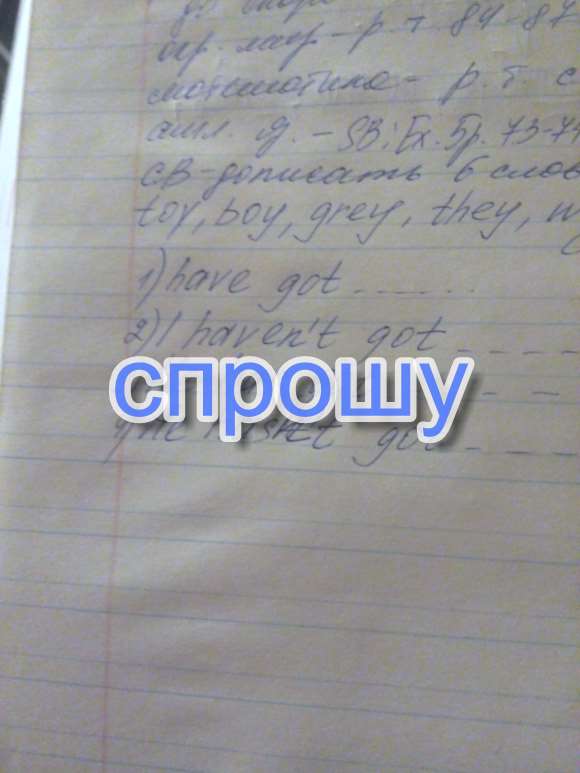 окр. мир - р. т. 84-87
математика - р. т. с
англ. я. - SB: Ex. 5 p. 73-7
СВ-дописать 6 слов
toy, boy, grey, they,
1) have got
2) I haven't got
спрошу
4) he hasn't got